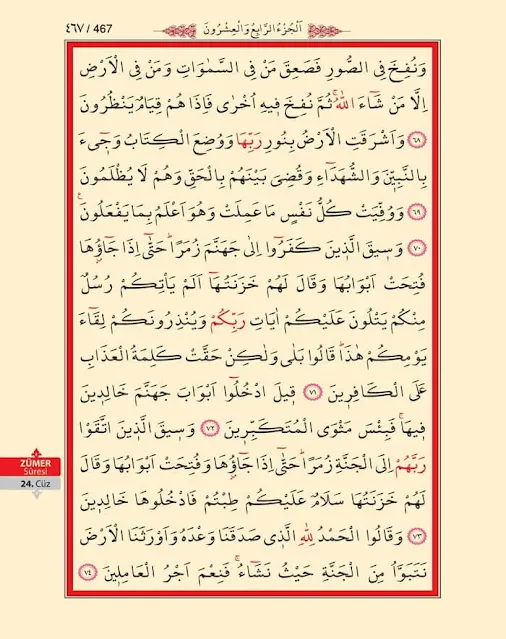 ٤٦٧ / 467
اَلْجُزْءُ الرَّابِعُ وَالْعِشْرُونَ
وَنُفِخَ فِي الصُّورِ فَصَعِقَ مَنْ فِي السَّمٰوَاتِ وَمَنْ فِي الْاَرْضِ
اِلَّا مَنْ شَٓاءَ اللّٰهُۜ ثُمَّ نُفِخَ فٖيهِ اُخْرٰى فَاِذَا هُمْ قِيَامٌ يَنْظُرُونَ
﴿٦٨﴾ وَاَشْرَقَتِ الْاَرْضُ بِنُورِ رَبِّهَا وَوُضِعَ الْكِتَابُ وَجٖٓيءَ
بِالنَّبِيّٖنَ وَالشُّهَدَٓاءِ وَقُضِيَ بَيْنَهُمْ بِالْحَقِّ وَهُمْ لَا يُظْلَمُونَ
﴿٦٩﴾ وَوُفِّيَتْ كُلُّ نَفْسٍ مَا عَمِلَتْ وَهُوَ اَعْلَمُ بِمَا يَفْعَلُونَ۟
﴿٧٠﴾ وَسٖيقَ الَّذٖينَ كَفَرُٓوا اِلٰى جَهَنَّمَ زُمَرًاۜ حَتّٰٓى اِذَا جَٓاؤُ۫هَا
فُتِحَتْ اَبْوَابُهَا وَقَالَ لَهُمْ خَزَنَتُهَٓا اَلَمْ يَأْتِكُمْ رُسُلٌ
مِنْكُمْ يَتْلُونَ عَلَيْكُمْ اٰيَاتِ رَبِّكُمْ وَيُنْذِرُونَكُمْ لِقَٓاءَ
يَوْمِكُمْ هٰذَاۜ قَالُوا بَلٰى وَلٰكِنْ حَقَّتْ كَلِمَةُ الْعَذَابِ
عَلَى الْكَافِرٖينَ ﴿٧١﴾ قٖيلَ ادْخُلُٓوا اَبْوَابَ جَهَنَّمَ خَالِدٖينَ
فٖيهَاۚ فَبِئْسَ مَثْوَى الْمُتَكَبِّرٖينَ ﴿٧٢﴾ وَسٖيقَ الَّذٖينَ اتَّقَوْا
رَبَّهُمْ اِلَى الْجَنَّةِ زُمَرًاۜ حَتّٰٓى اِذَا جَٓاؤُ۫هَا وَفُتِحَتْ اَبْوَابُهَا وَقَالَ
لَهُمْ خَزَنَتُهَا سَلَامٌ عَلَيْكُمْ طِبْتُمْ فَادْخُلُوهَا خَالِدٖينَ
﴿٧٣﴾ وَقَالُوا الْحَمْدُ لِلّٰهِ الَّذٖي صَدَقَنَا وَعْدَهُ وَاَوْرَثَنَا الْاَرْضَ
نَتَبَوَّاُ مِنَ الْجَنَّةِ حَيْثُ نَشَٓاءُۚ فَنِعْمَ اَجْرُ الْعَامِلٖينَ ﴿٧٤﴾
ZÜMER
Sûresi
24. Cüz